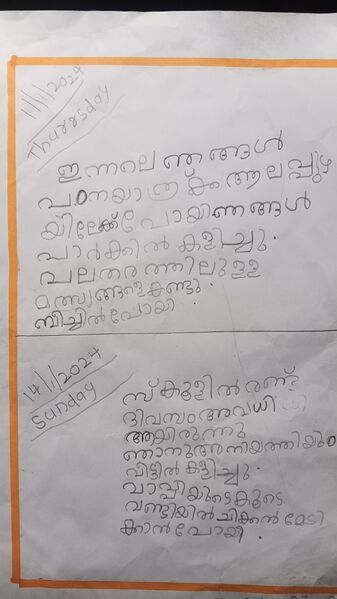 11/1/2024
Thurrsday
ഇന്നലെ ഞങ്ങൾ
പഠനയാത്ര്ക്ക ആലപ്പുഴ
യിലേക്ക് പോയി ഞങ്ങൾ
പാർക്കിൽ കളിച്ചു.
പലതരത്തിലുള്ള
മത്സ്യങ്ങളെ കണ്ടു.
ബീച്ചിൽ പോയി.
14/1/2024
Sunday
സ്കൂളിൽ രണ്ട്
ദിവസം അവധി
ആയിരുന്നു
ഞാനുഅനിയത്തിയും
വീട്ടിൽ കളിച്ചു.
വാപ്പിയുടെകൂടെ
വണ്ടിയിൽ ചിക്കൻ മേടി
ക്കാൻ പോയി.